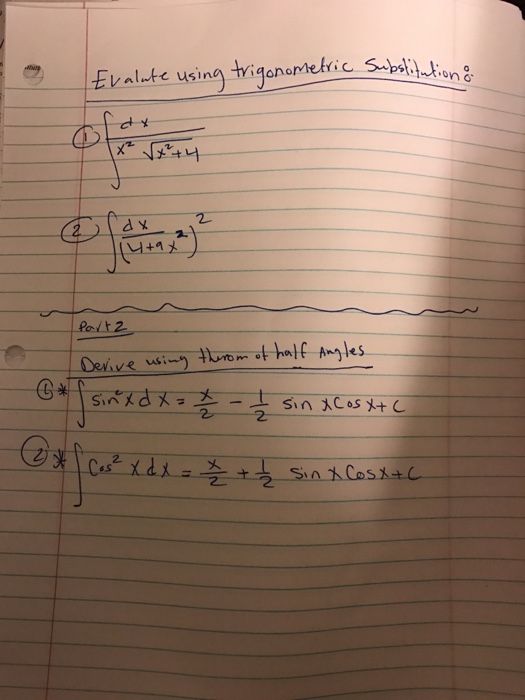 Evaluate using trigonometric Substitution:
① ∫ dx / (x² √(x²+4))
② ∫ dx / (4+9x²)²
Part 2
Derive using therom of half Angles
①* ∫ sin²x dx = x/2 - 1/2 sin x cos x + C
②* ∫ Cos² x dx = x/2 + 1/2 sin x Cos x + C